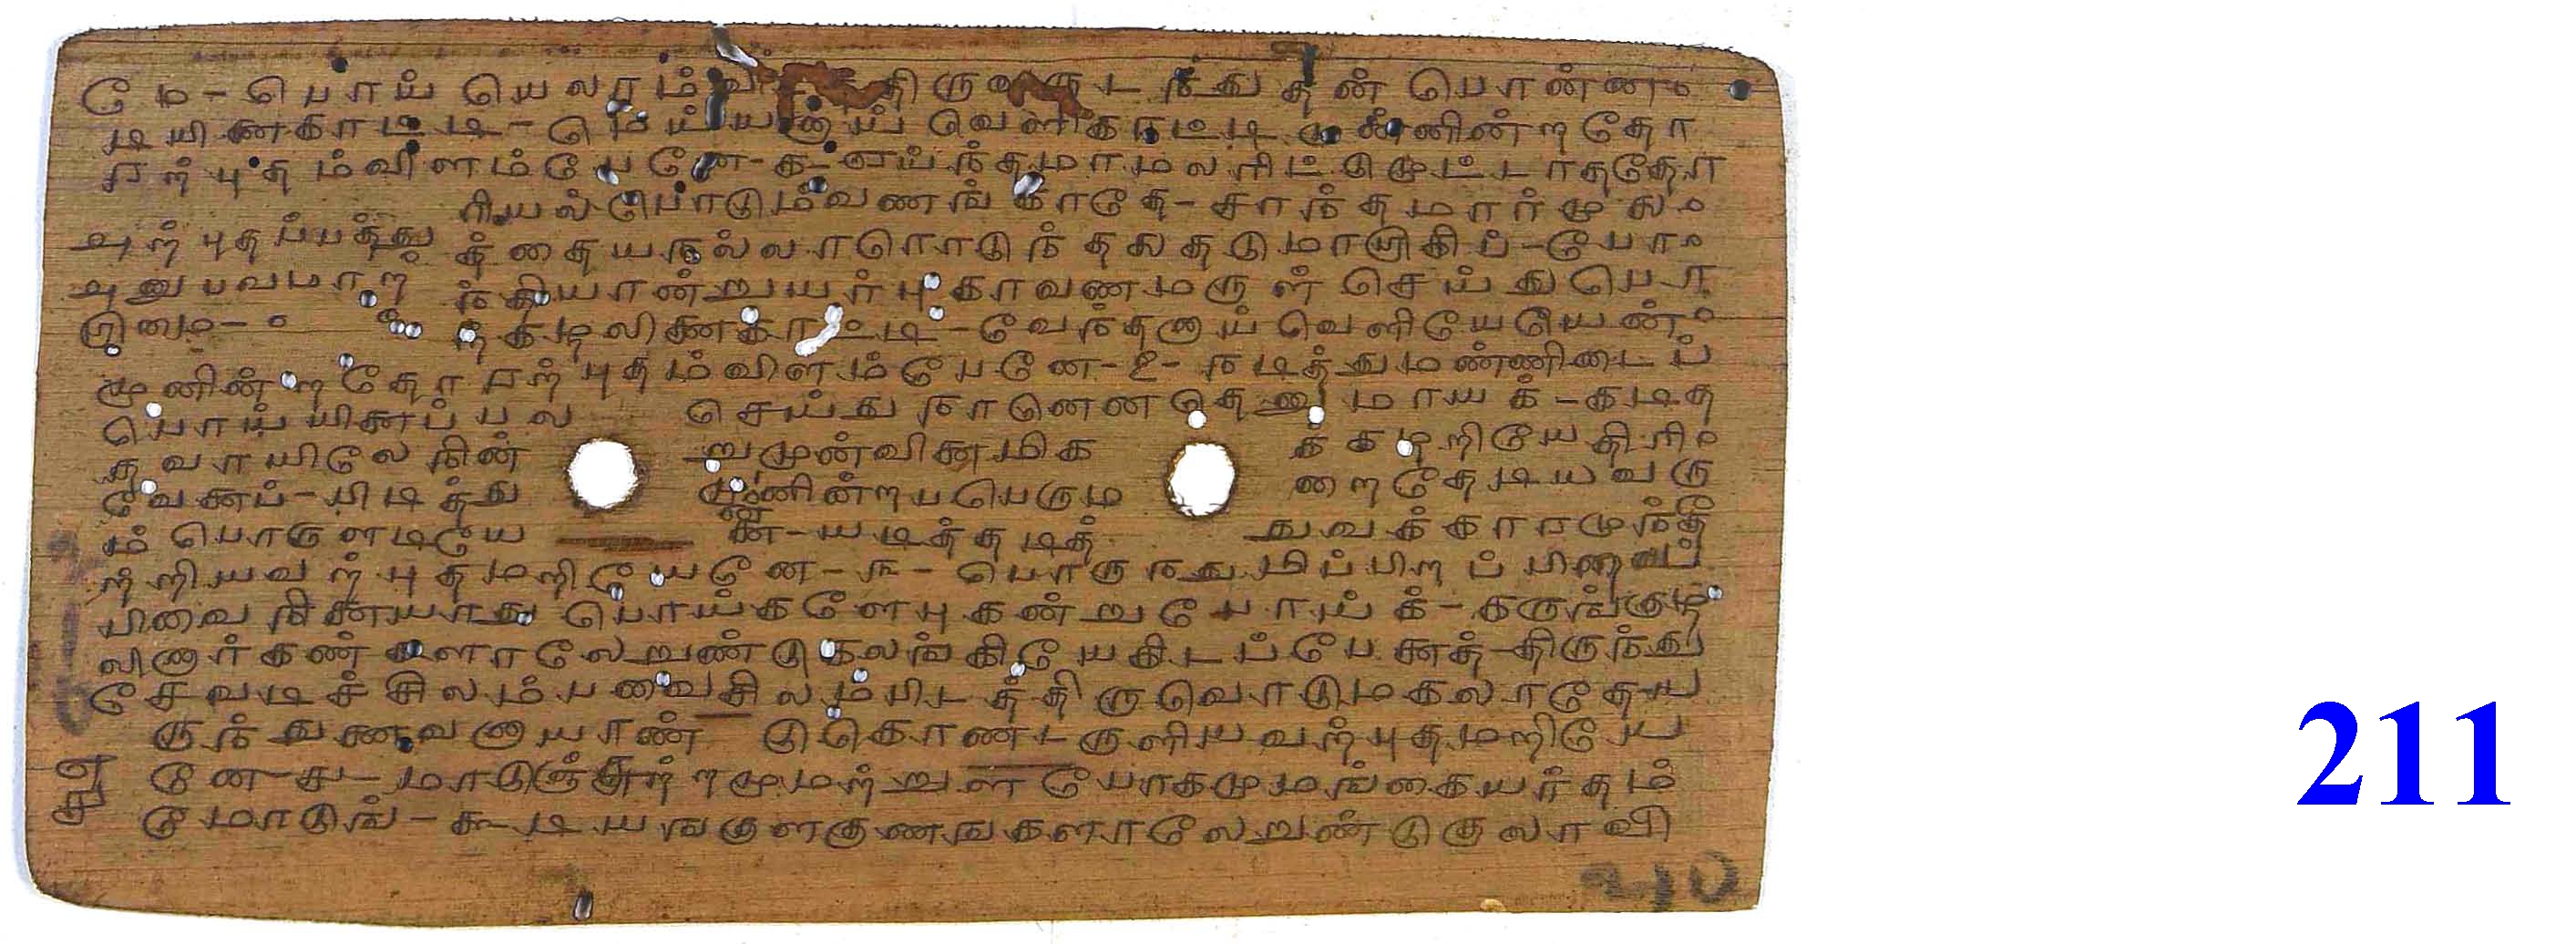 மே-பொய் யெலாம்வி திருவரு டந்து தன் பொன்ன
டியிணைகாட்டி-மெய்யனாய் வெளிகாட்டி முன்னின்றதோ
ரற்புதம்விளம்பேனே-க-ஏய்ந்தமாமலரிட்டுமுட்டாததோ
ரியல்பொடும்வணங்காதே-சாந்தமார்முலை
அற்புதப்பத்து த்தையநல்லாரொடுந்தலைதடுமாறாகிப்-போ
அனுபவமாற் ந்தியான்றுயர்புகாவணமருள்செய்துபொ
றாமை- ற்கழலிணைகாட்டி-வேந்தனாய் வெளியேயென்
முனின்றதோரற்புதம்விளம்பேனே-உ-நடித்துமண்ணிடைப்
பொய்யினைப்பல செய்து நானெனதெனுமாயக்-கடித
தவாயிலே நின் றுமுன்வினைமிக க்கழறியேதிரி
வேனைப்-பிடித்து முன்னின்றபபெரும றைதேடியவரு
ம்பொருளடியே னை-யடித்தடித் துவக்காரமுந்தீ
ற்றியவற்புதமறியேனே-௩-பொருந்துமிப்பிறப்பிறப்
பிவை நினையாது பொய்களேபுகன்றுபோய்க்-கருங்குழ
லினார்கண்களாலேறுண்டுகலங்கியேகிடப்பேனைத்-திருந்து
சேவடிச்சிலம்பவைசிலம்பிடத்திருவொடுமகலாதே-ய
ருந்துணைவனாயாண் டுகொண்டருளியவற்புதமறியே
னே-ச-மாடுஞ்சுற்றமுமற்றுள போகமுமங்கையர்தம்
மோடுங்-கூடியங்குளகுணங்களாலேறுண்டுகுலாவி
210
211